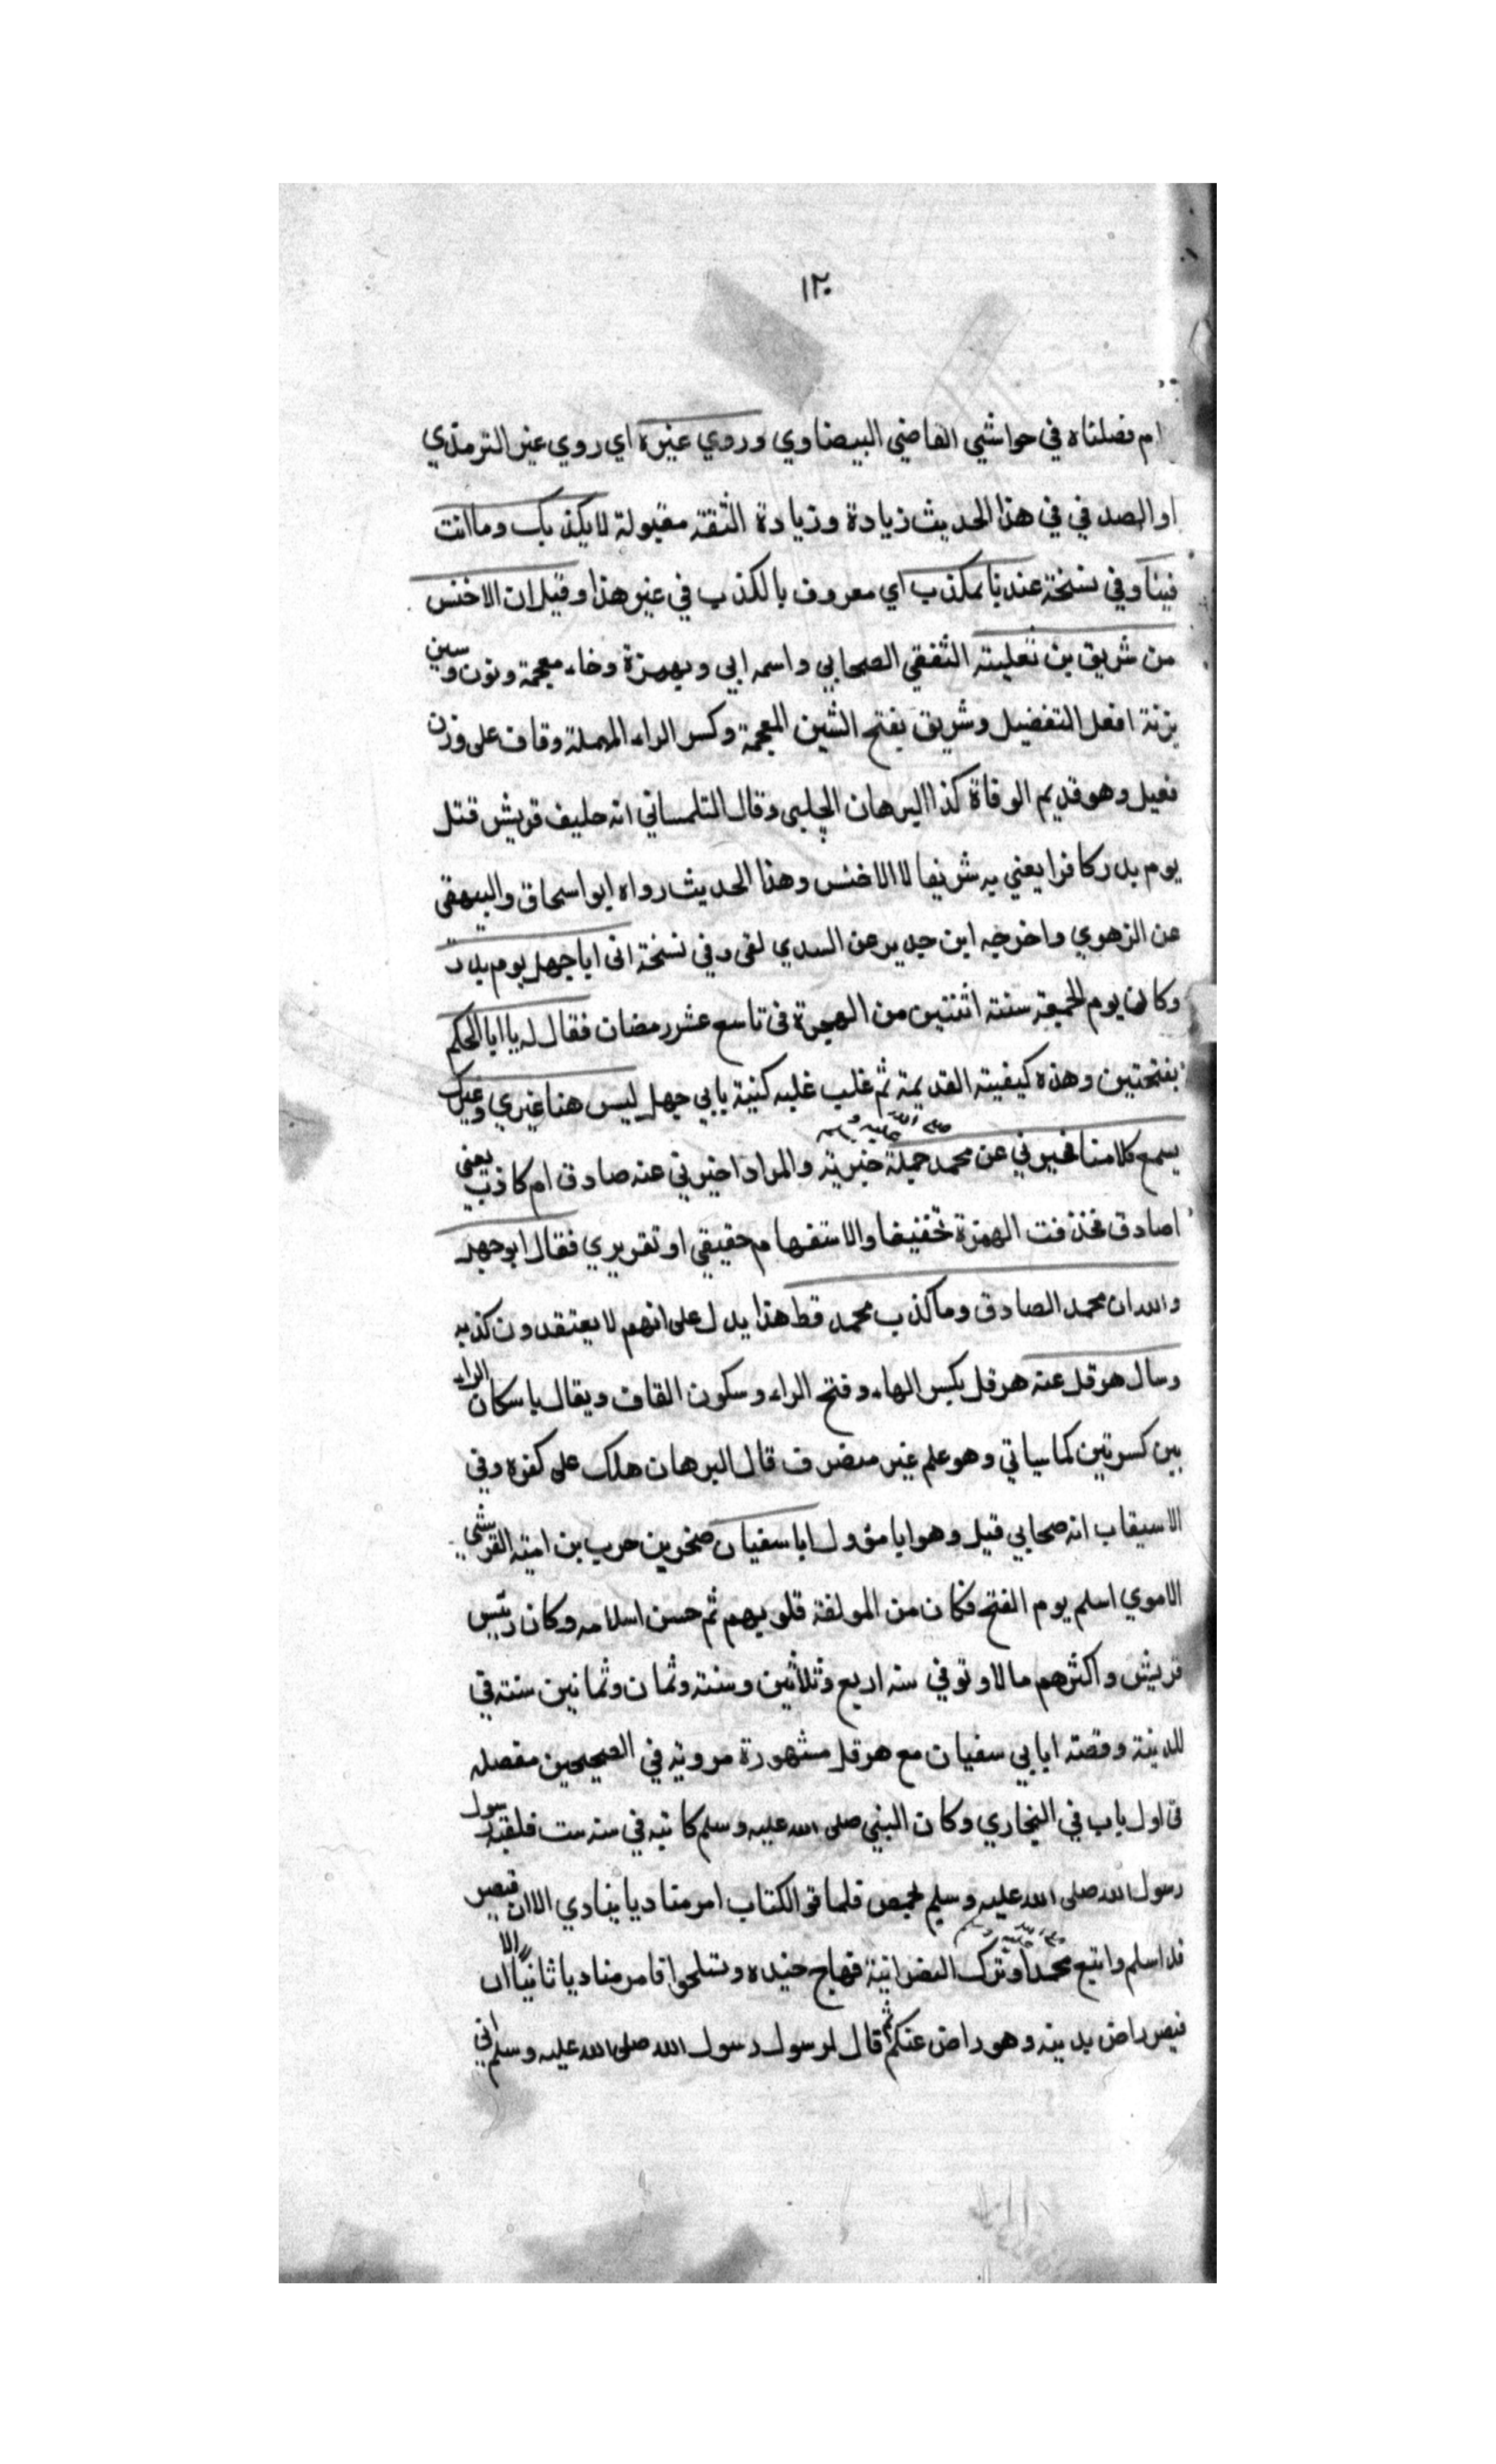 ١٢٠
ام فصلناه في حواشي القاضي البيضاوي وروي غيره اي روي غير الترمذي
او الصدفي في هذا الحديث زيادة وزيادة الثقة مقبولة لا يكذبك وما انت
فينا وفي نسخة عندنا بمكذب اي معروف بالكذب في غير هذا وقيل ان الاخنس
من شريق بن ثعلبة الثقفي الصحابي واسمه ابي وبهمزة وخاء معجمة ونون وسين
بزنة افعل التفضيل وشريق بفتح الشين المعجمة وكسر الراء المهملة وقاف على وزن
فعيل وهو قديم الوفاة كذا البرهان الحلبي وقال التلمساني انه حليف قريش قتل
يوم بدر كافرا يعني به شريفا لا الاخنس وهذا الحديث رواه ابو اسحاق والبيهقي
عن الزهوي واخرجه ابن جرير عن السدي لقى وفي نسخة اتى ابا جهل يوم بدر
وكان يوم الجمعة سنة اثنتين من الهجرة في تاسع عشر رمضان فقال له يا ابا الحكم
بفتحتين وهذه كيفيته القديمة ثم غلب عليه كنية بابي جهل ليس هنا غيري وغيرك
يسمع كلامنا تخبرني عن محمد صلى الله عليه وسلم جملة خبرية والمراد اخبرني عنه صادق ام كاذب يعني
اصادق فحذفت الهمزة تخفيفا والاستفهام حقيقي او تقريري فقال ابو جهل
والله ان محمد الصادق وما كذب محمد قط هذا يدل على انهم لا يعتقدون كذبه
وسال هرقل عنه هرقل بكسر الهاء وفتح الراء وسكون القاف ويقال باسكان الراء
بين كسرتين كما سياتي وهو علم غير منصرف قال البرهان هلك على كفره وفي
الاسيقاب انه صحابي قيل وهو ابا مؤول ابا سفيان صخر بن حرب بن امية القرشي
الاموي اسلم يوم الفتح فكان من المولفة قلوبهم ثم حسن اسلامه وكان رئيس
قريش واكثرهم مالا وتوفي سنة اربع وثلاثين وسنه وثمان وثمانين سنة في
المدينة وقصة ابا بي سفيان مع هرقل مشهورة مروية في الصحيحين مفصله
في اول باب في البخاري وكان النبي صلى الله عليه وسلم كاتبه في سنة ست فلقيه رسول
رسول الله صلى الله عليه وسلم بحمص فلما قرا الكتاب امر مناديا ينادي الا ان قيصر
قد اسلم واتبع محمدا صلى الله عليه وسلم وترك النصرانية فهاج جنده وتسلحوا فامر مناديا ثانيا الا ان
قيصر راض بدينه وهو راض عنكم ثم قال لرسول رسول الله صلى الله عليه وسلم اني